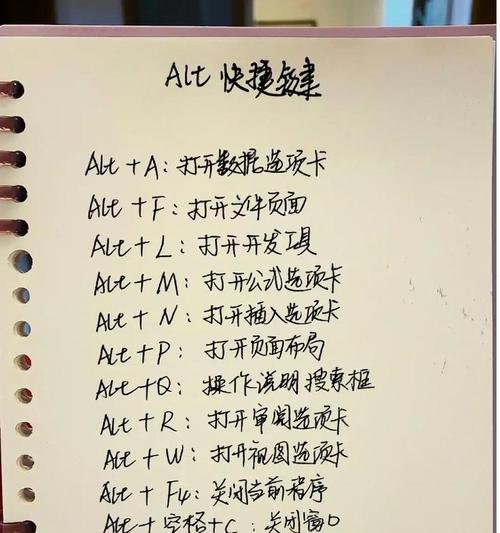 Alt 快捷键
Alt + A: 打开数据选项卡
Alt + F: 打开文件页面
Alt + L: 打开开发工具
Alt + M: 打开公式选项卡
Alt + N: 打开插入选项卡
Alt + P: 打开页面布局
Alt + Q: 操作说明搜索框
Alt + R: 打开审阅选项卡
Alt + W: 打开视图选项卡
Alt + F4: 关闭当前程序
Alt + 空格 + C: 关闭窗口